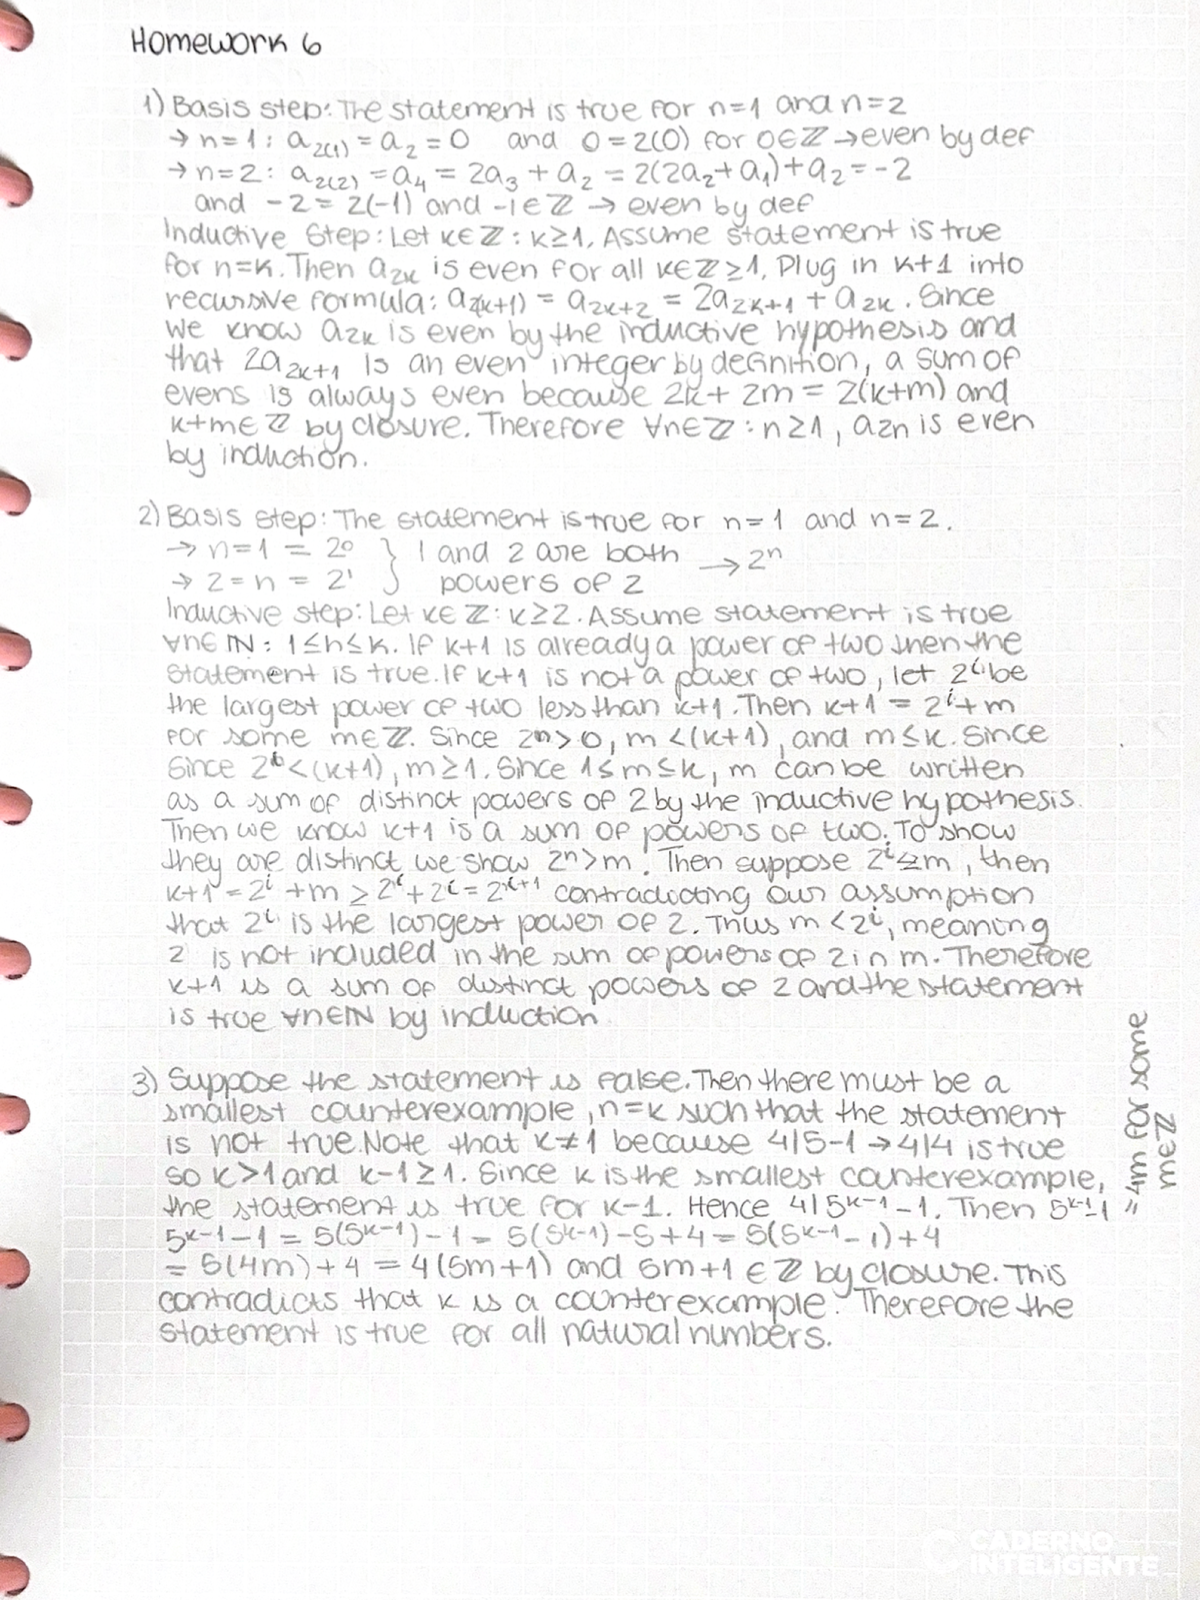 Homework 6
1) Basis step: The statement is true for n=1 and n=2
→ n=1: a₂₍₁₎ = a₂ = 0 and 0 = 2(0) for 0∈ℤ → even by def
→ n=2: a₂₍₂₎ = a₄ = 2a₃ + a₂ = 2(2a₂+a₁)+a₂ = -2
and -2 = 2(-1) and -1∈ℤ → even by def
Inductive Step: Let k∈ℤ: k≥1. Assume statement is true
for n=k. Then a₂ₖ is even for all k∈ℤ≥1. Plug in k+1 into
recursive formula: a₂₍ₖ₊₁₎ = a₂ₖ₊₂ = 2a₂ₖ₊₁ + a₂ₖ. Since
we know a₂ₖ is even by the inductive hypothesis and
that 2a₂ₖ₊₁ is an even integer by definition, a sum of
evens is always even because 2k + 2m = 2(k+m) and
k+m∈ℤ by closure. Therefore ∀n∈ℤ: n≥1, a₂ₙ is even
by induction.
2) Basis step: The statement is true for n=1 and n=2.
→ n=1 = 2⁰ } 1 and 2 are both → 2ⁿ
→ 2=n = 2¹ } powers of 2
Inductive step: Let k∈ℤ: k≥2. Assume statement is true
∀n∈ℕ: 1≤n≤k. If k+1 is already a power of two then the
statement is true. If k+1 is not a power of two, let 2ⁱ be
the largest power of two less than k+1. Then k+1 = 2ⁱ+m
for some m∈ℤ. Since 2ⁿ>0, m<(k+1), and m≤k. Since
Since 2ⁱ<(k+1), m≥1. Since 1≤m≤k, m can be written
as a sum of distinct powers of 2 by the inductive hypothesis.
Then we know k+1 is a sum of powers of two. To show
they are distinct we show 2ⁿ>m. Then suppose 2ⁱ≤m, then
k+1 = 2ⁱ +m ≥ 2ⁱ+2ⁱ = 2ⁱ⁺¹ contradicting our assumption
that 2ⁱ is the largest power of 2. Thus m<2ⁱ, meaning
2 is not included in the sum of powers of 2 in m. Therefore
k+1 is a sum of distinct powers of 2 and the statement
is true ∀n∈ℕ by induction
3) Suppose the statement is false. Then there must be a
smallest counterexample, n=k such that the statement
is not true. Note that k≠1 because 4|5-1 → 4|4 is true
so k>1 and k-1≥1. Since k is the smallest counterexample,
the statement is true for k-1. Hence 4|5ᵏ⁻¹-1. Then 5ᵏ⁻¹-1 = 4m for some m∈ℤ
5ᵏ⁻¹-1 = 5(5ᵏ⁻¹)-1 = 5(5ᵏ⁻¹)-5+4 = 5(5ᵏ⁻¹-1)+4
= 5(4m)+4 = 4(5m+1) and 5m+1∈ℤ by closure. This
contradicts that k is a counterexample. Therefore the
statement is true for all natural numbers.
CADERNO
INTELIGENTE